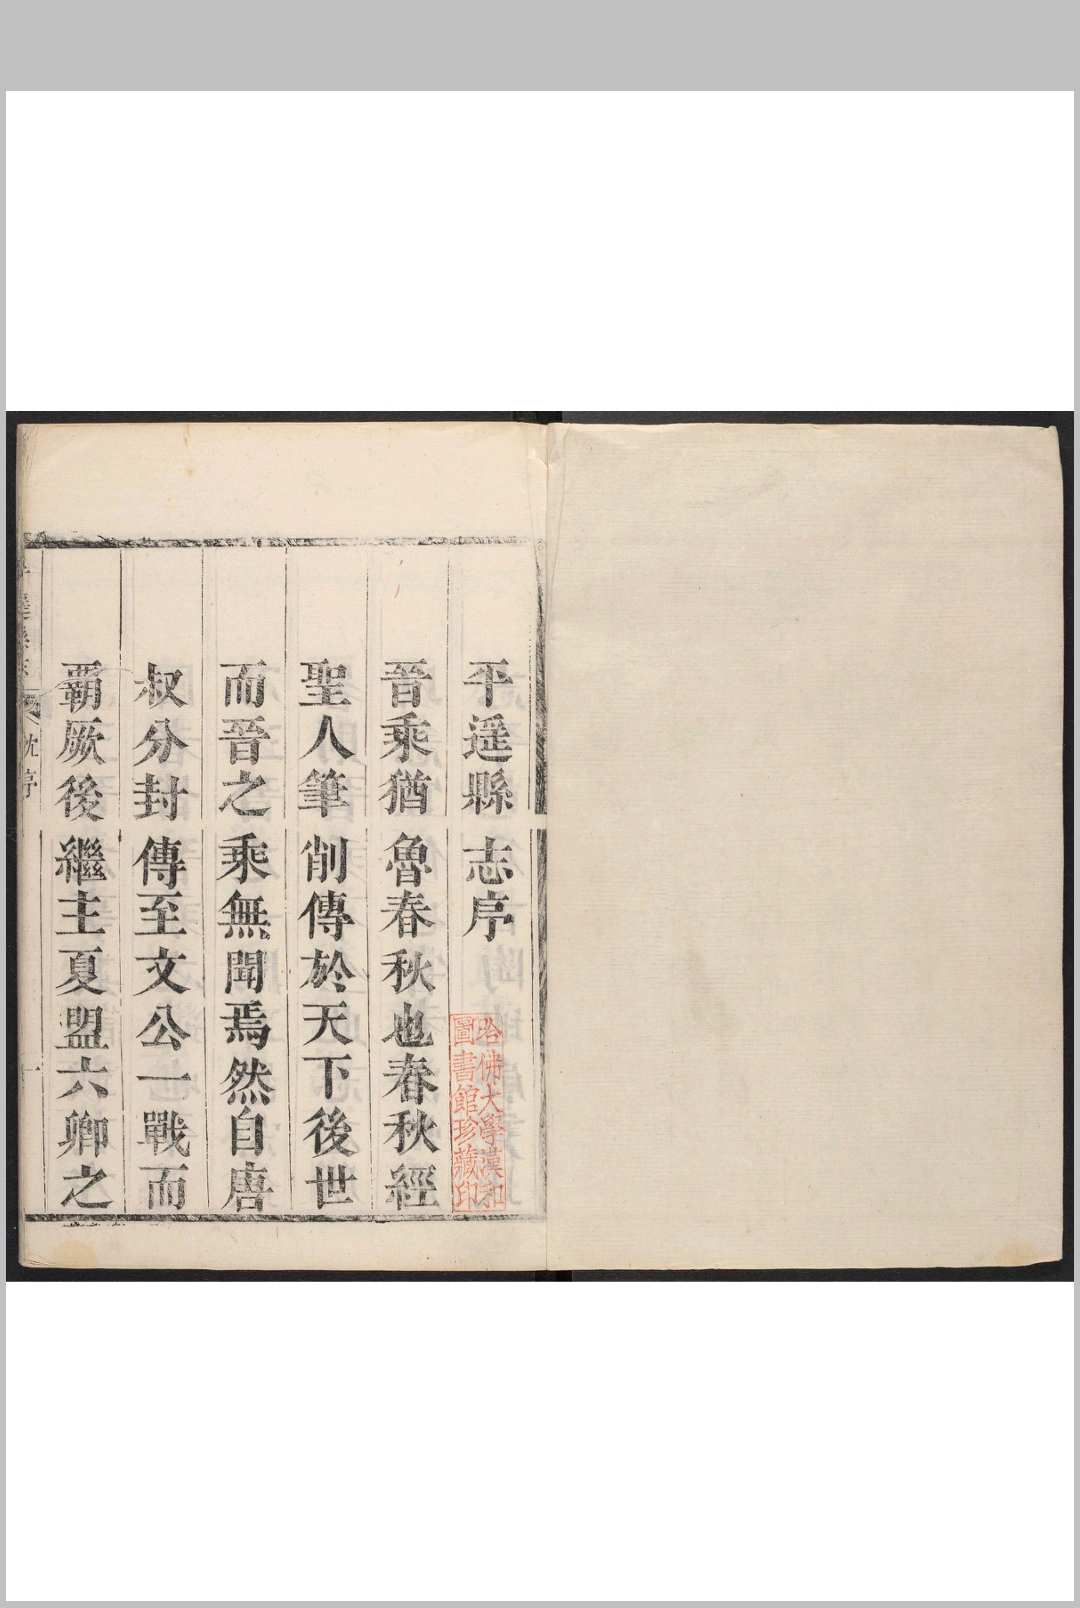 平遥縣志序
晉乘猶魯春秋也春秋經
聖人筆削傳於天下後世
而晉之乘無聞焉然自唐
叔分封傳至文公一戰而
覇厥後繼主夏盟六卿之
哈佛大學漢和
圖書館珍藏印